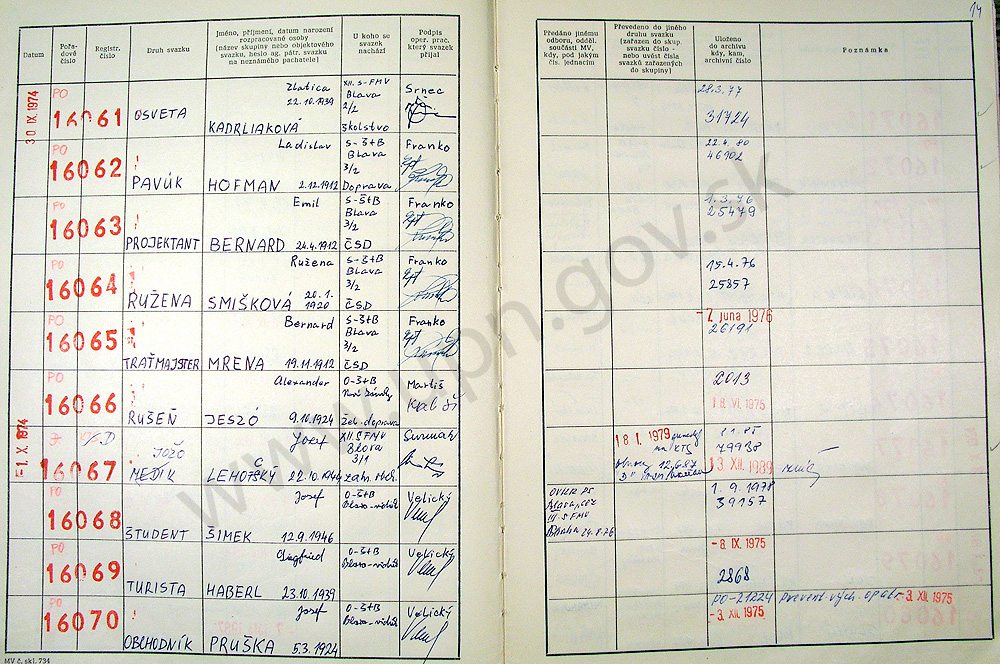 14
Datum
Pořa-
dové
číslo
Registr.
číslo
Druh svazku
Jméno, příjmení, datum narození
rozpracované osoby
(název skupiny nebo objektového
svazku, heslo ag. pátr. svazku
na neznámého pachatele)
U koho se
svazek
nachází
Podpis
oper. prac.
který svazek
přijal
Předáno jinému
odboru, odděl.
součásti MV,
kdy, pod jakým
čís. jednacím
Převedeno do jiného
druhu svazku
(zařazen do skup.
svazku číslo -
nebo uvést čísla
svazků zařazených
do skupiny)
Uloženo
do archivu
kdy, kam,
archivní číslo
Poznámka
30 IX. 1974
PO
16061
OSVETA
Zlatica
22.10.1939
KADRLIAKOVÁ
XII. S-FMV
Blava
2/2
školstvo
Srnec
28.3.77
31724
PO
16062
PAVÚK
Ladislav
HOFMAN 2.12.1912
S-Š+B
Blava
3/2
Doprava
Franko
22.4.80
46902
PO
16063
PROJEKTANT
Emil
BERNARD 24.4.1912
S-Š+B
Blava
3/2
ČSD
Franko
1.3.76
25479
PO
16064
RUŽENA
Ružena
SMIŠKOVÁ 20.1.
1920
S-Š+B
Blava
3/2
ČSD
Franko
15.4.76
25857
16065
TRAŤMAJSTER
Bernard
MRENA 19.11.1912
S-Š+B
Blava
3/2
ČSD
Franko
-7. júna 1976
26191
PO
16066
RUŠEŇ
Alexander
JESZÓ 9.10.1924
O-Š+B
Žel. doprava
Martiš
2013
18. VI. 1975
-1. X. 1974
16067
JOŽO
MEDIK
Jozef
LEHOTSKÝ 22.10.1944
XII. S FMV
Blava
3/1
18 1. 1979
79938
13. XII. 1989
PO
16068
ŠTUDENT
Josef
ŠIMEK 12.9.1946
O-Š+B
Velický
III S FMV
Praha 24.8.76
1. 9. 1978
39157
PO
16069
TURISTA
Siegfried
HABERL 23.10.1939
O-Š+B
Velický
-8. IX. 1975
2868
PO
16070
OBCHODNÍK
Josef
PRUŠKA 5.3.1924
O-Š+B
Velický
PO-21224
-3. XII. 1975
Prevent. vých. opatr. -3. XII. 1975
MV č. skl. 734
www.upn.gov.sk